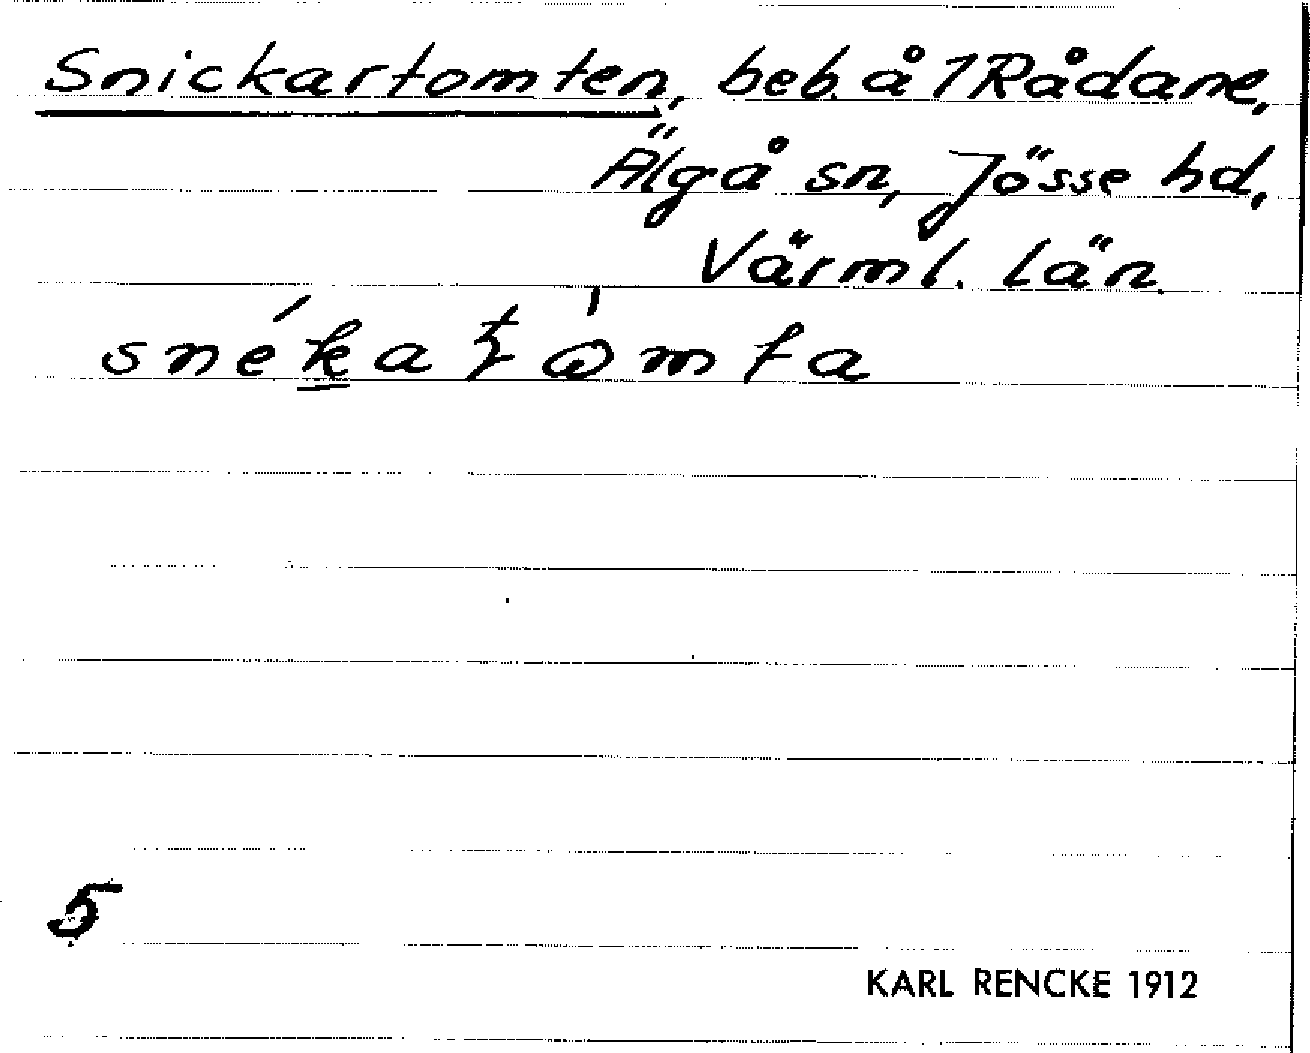 Snickartomten, beb. å 1 Rådane,
Älgå sn, Jösse hd,
Värml. län.
snékaʈòmta
5
KARL RENCKE 1912